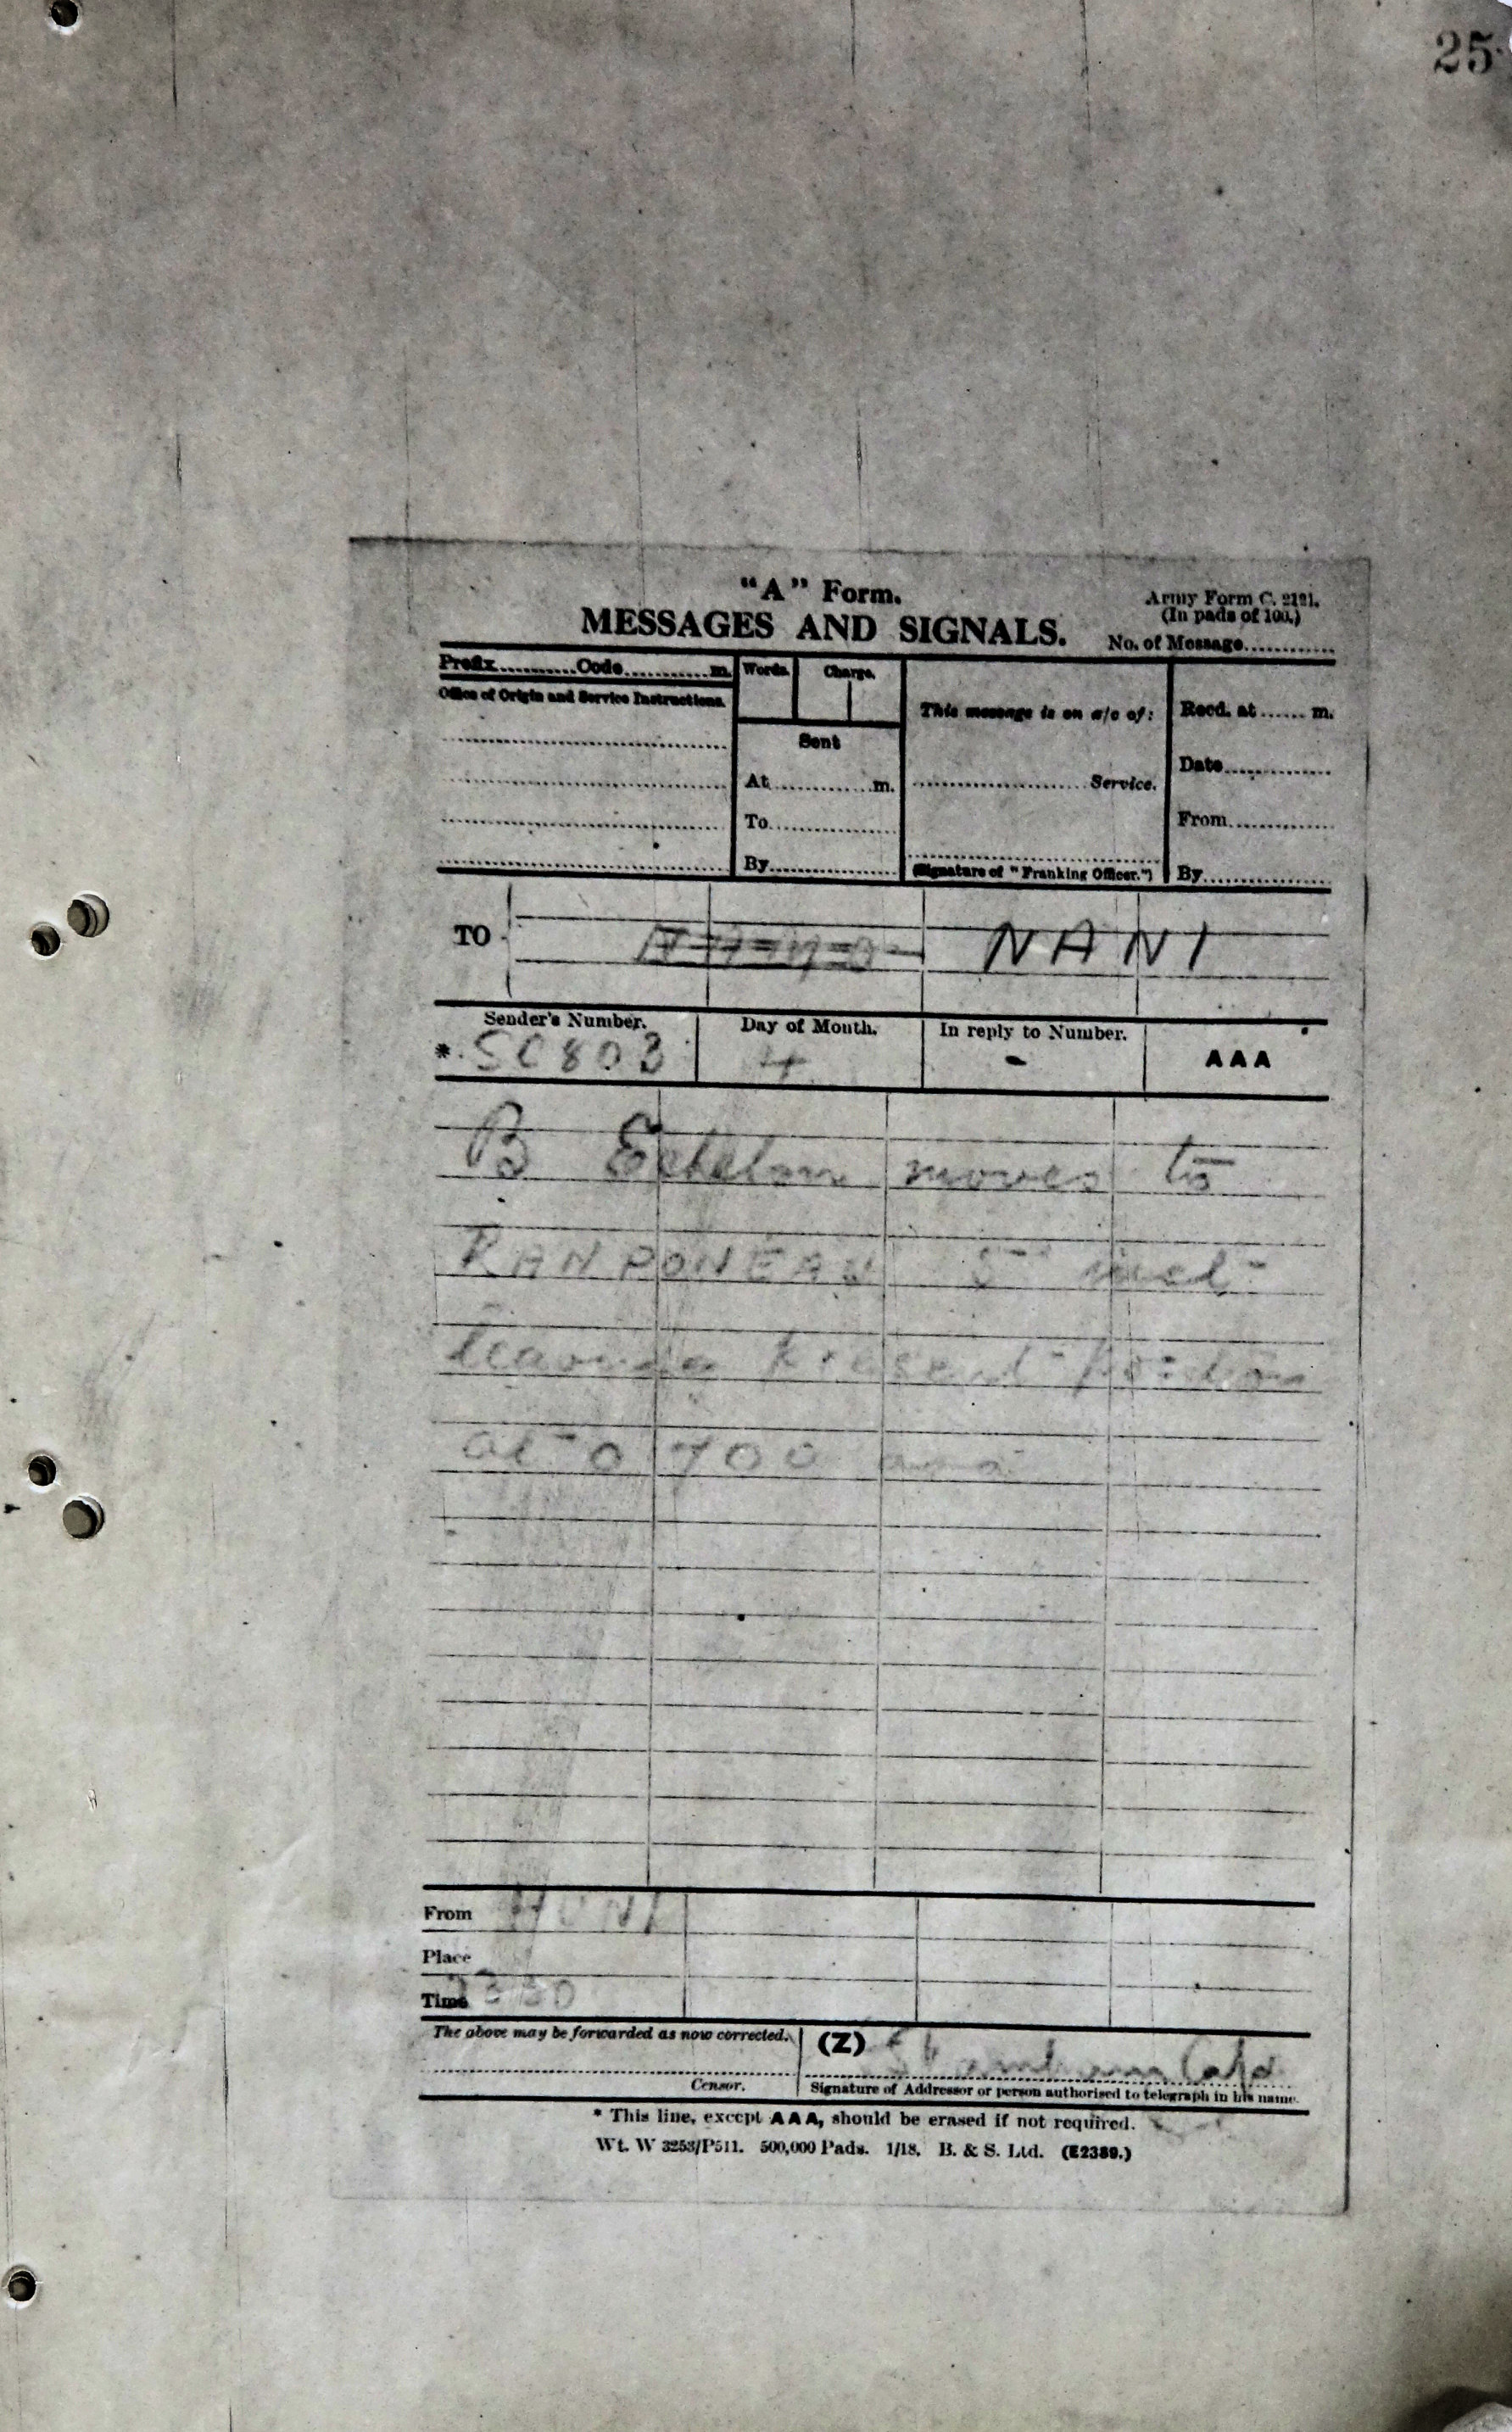 25
"A" Form.
MESSAGES AND SIGNALS.
Army Form C. 2121.
(In pads of 100.)
No. of Message............
Prefix..........Code...........m.
Words.
Charge.
Office of Origin and Service Instructions.
Sent
At............m.
To..............
By..............
This message is on a/c of:
........................Service.
(Signature of "Franking Officer.")
Recd. at......m.
Date..............
From..............
By..............
TO
NANI
Sender's Number.
Day of Month.
In reply to Number.
* SC803
4
-
AAA
B Echelon moves to
RAMPONEAU 5th inst
leaving present position
at 0700 aaa
From
Place
Time
The above may be forwarded as now corrected.
(Z)
Capt
Censor.
Signature of Addressor or person authorised to telegraph in his name.
* This line, except AAA, should be erased if not required.
Wt. W 3253/P511. 500,000 Pads. 1/18. B. & S. Ltd. (E2389.)